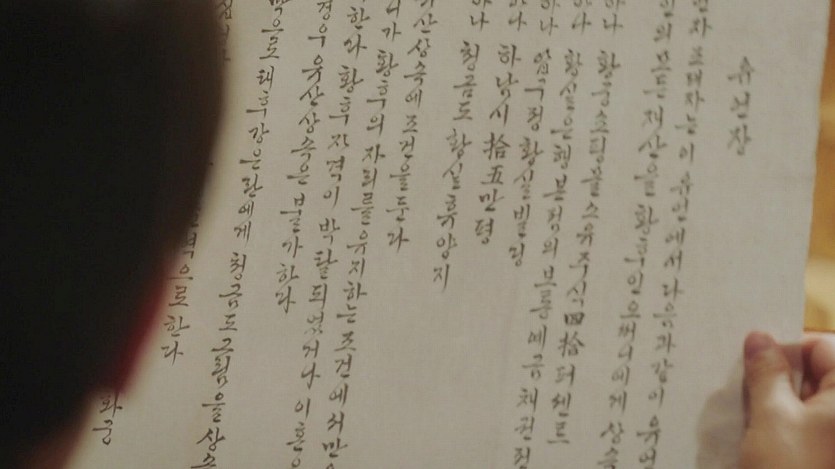 유언장
조태자는 이 유언에서 다음과 같이 유언
모든 재산을 황후인 오써니에게 상속
하나 황궁쇼핑몰 소유 주식 四拾 퍼센트
하나 황실은행 본점의 모든 예금 채권
하나 압구정 황실빌딩
하나 하남시 拾五만평
하나 청금도 황실휴양지
유산상속에 조건을 둔다
니가 황후의 자리를 유지하는 조건에서만
한다 황후 자격이 박탈되었거나 이혼
경우 유산상속은 불가하다
으로 태후 강은란에게 청금도 그림을 상속
으로 한다